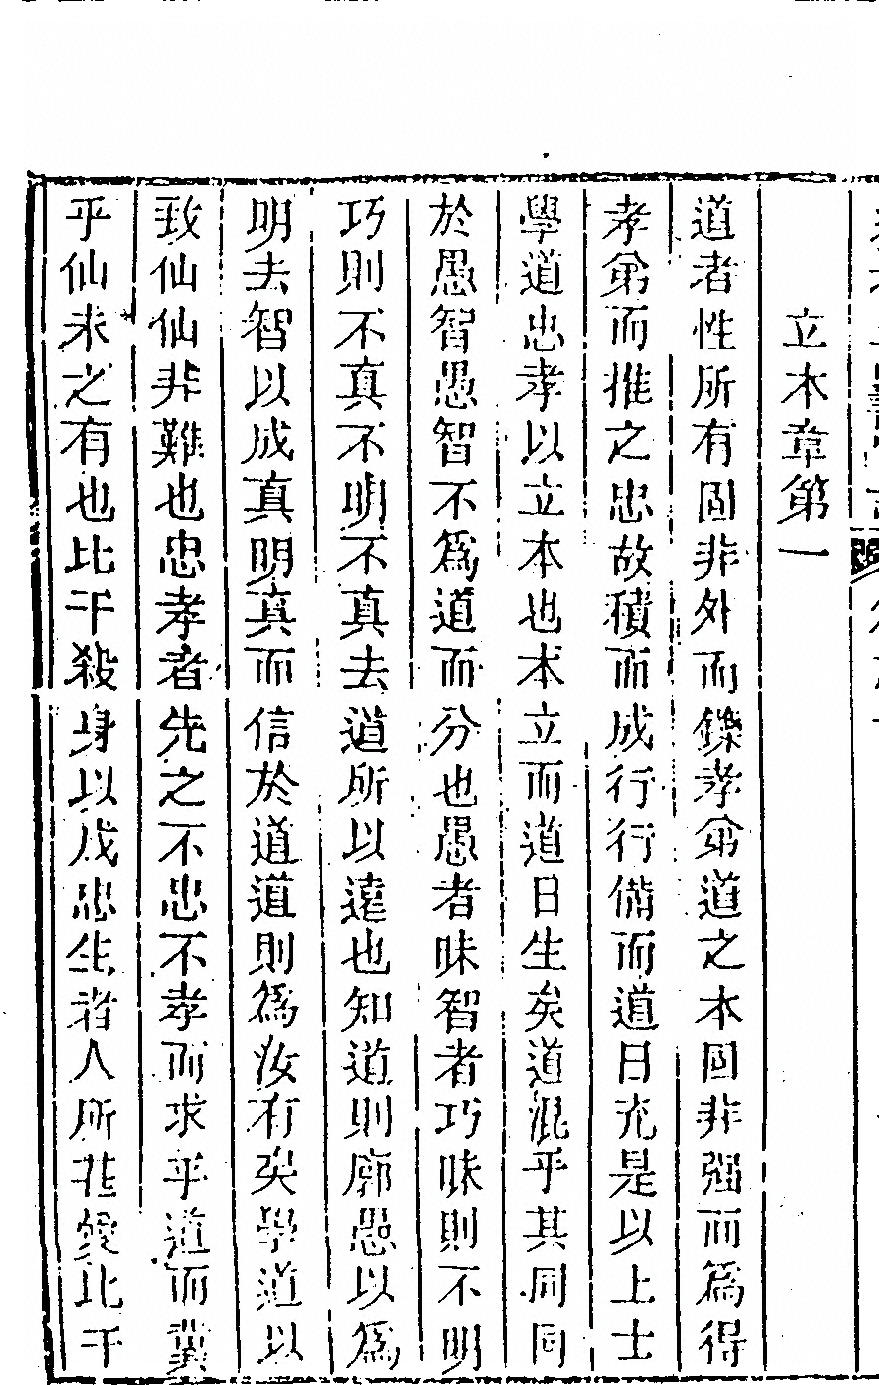 立本章第一
道者性所有固非外而鑠孝弟道之本固非强而為得
孝弟而推之忠故積而成行行備而道日充是以上士
學道忠孝以立本也本立而道日生矣道混乎其同同
於愚智愚智不為道而分也愚者昧智者巧昧則不明
巧則不真不明不真去道所以遠也知道則廓愚以為
明去智以成真明真而信於道道則為汝有矣學道以
致仙仙非難也忠孝者先之不忠不孝而求乎道而冀
乎仙未之有也比干殺身以成忠生者人所甚愛比干